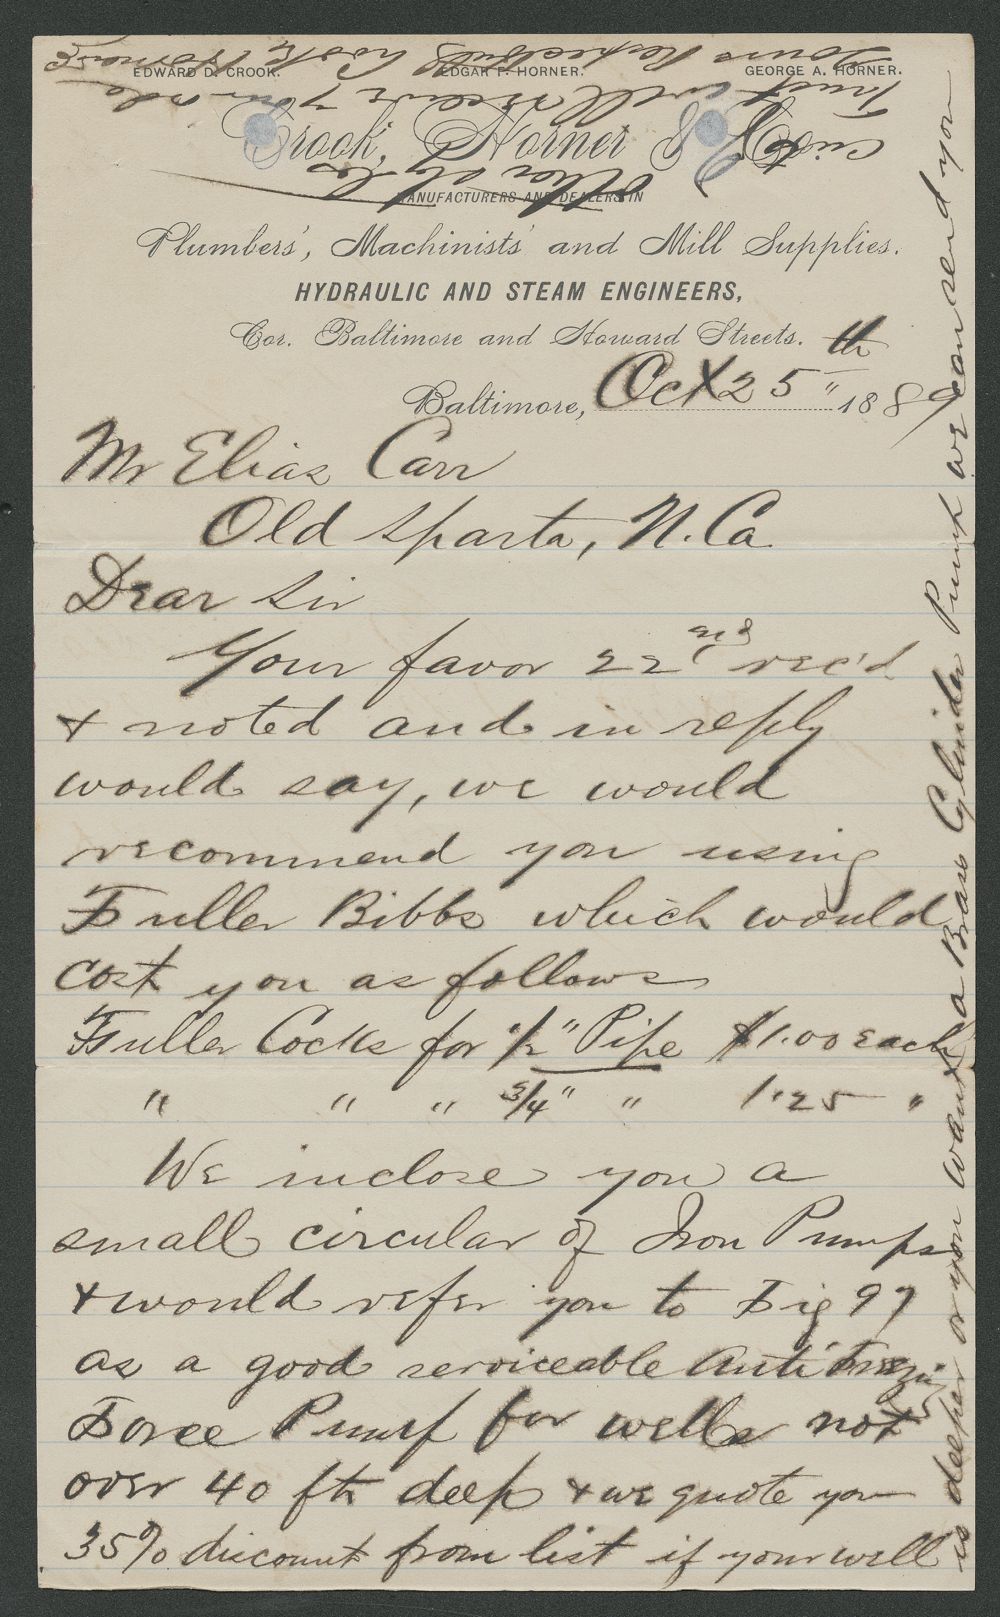 EDWARD D. CROOK. EDGAR F. HORNER. GEORGE A. HORNER.
Crook, Horner & Co.
MANUFACTURERS AND DEALERS IN
Plumbers', Machinists' and Mill Supplies.
HYDRAULIC AND STEAM ENGINEERS,
Cor. Baltimore and Howard Streets.
Baltimore, Oct 25th 1889
Mr Elias Carr
Old Sparta, N. Ca
Dear Sir
Your favor 22nd rec'd
& noted and in reply
would say, we would
recommend you using
Fuller Bibbs which would
cost you as follows
Fuller Cocks for 1/2" Pipe $1.00 each
" " " 3/4" " 1.25 "
We inclose you a
small circular of Iron Pumps
& would refer you to Fig 97
as a good serviceable Anti Freezing
Force Pump for wells not
over 40 ft deep & we quote you
35% discount from list if your well
is deeper or you want a Brass Cylinder Pump we can send you
other styles
Trust will receive your orde
Yours Respectfully Crook Horner & Co